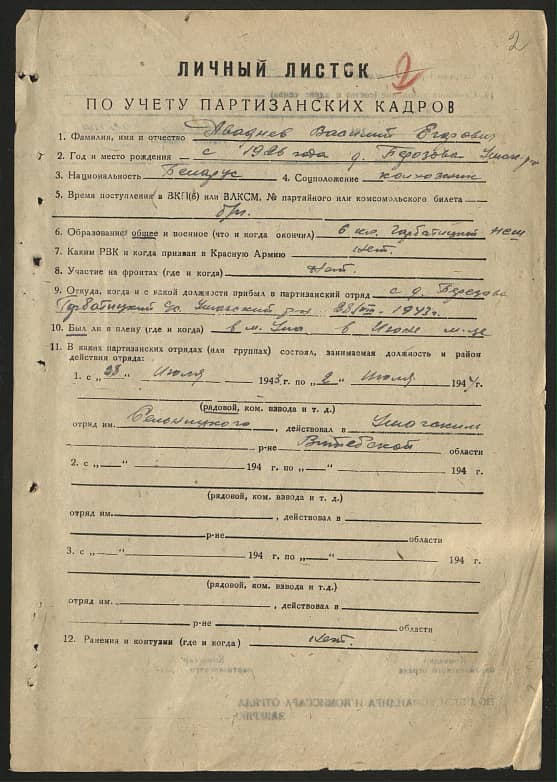 2
ЛИЧНЫЙ ЛИСТОК 2
ПО УЧЕТУ ПАРТИЗАНСКИХ КАДРОВ
1. Фамилия, имя и отчество Аваднев Василий Егорович
2. Год и место рождения с 1926 года д. Березова Ушач. р-н
3. Национальность Беларус 4. Соцположение колхозник
5. Время поступления в ВКП(б) или ВЛКСМ, № партийного или комсомольского билета —
б/п.
6. Образование общее и военное (что и когда окончил) 6 кл. нсш
7. Каким РВК и когда призван в Красную Армию Нет.
8. Участие на фронтах (где и когда) Нет.
9. Откуда, когда и с какой должности прибыл в партизанский отряд с д. Березово
с/с. Ушачский р-н. 28/VII. 1943 г.
10. Был ли в плену (где и когда) в м. Ула в Июне м-це
11. В каких партизанских отрядах (или группах) состоял, занимаемая должность и район
действия отряда:
1. с „28“ Июля 1943 г. по „2“ Июля 1944 г.
(рядовой, ком. взвода и т. д.)
отряд им. , действовал в Ушачским
р-не Витебской области
2. с „—“ 194 г. по „—“ 194 г.
(рядовой, ком. взвода и т. д.)
отряд им. , действовал в
р-не области
3. с „—“ 194 г. по „—“ 194 г.
(рядовой, ком. взвода и т.д.)
отряд им. , действовал в
р-не области
12. Ранения и контузии (где и когда) Нет.